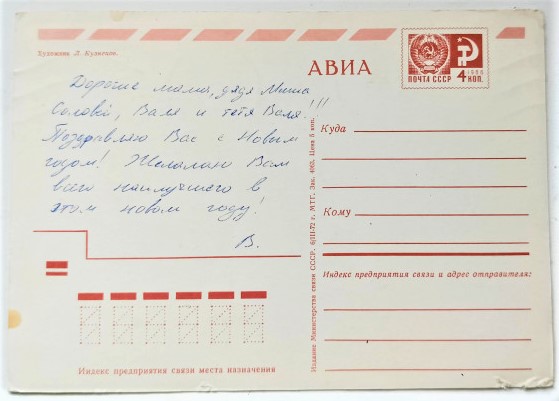 Художник Л. Кузнецов.
Дорогие мама, дядя Миша
Валя и тётя Валя!!!
Поздравляю Вас с Новым
годом! Желаю Вам
всего наилучшего в
этом новом году!
В.
АВИА
ПОЧТА СССР
1966
4 КОП.
Куда
Кому
Индекс предприятия связи и адрес отправителя:
Издание Министерства связи СССР. 6/III-72 г. МТГ. Зак. 4063. Цена 5 коп.
Индекс предприятия связи места назначения